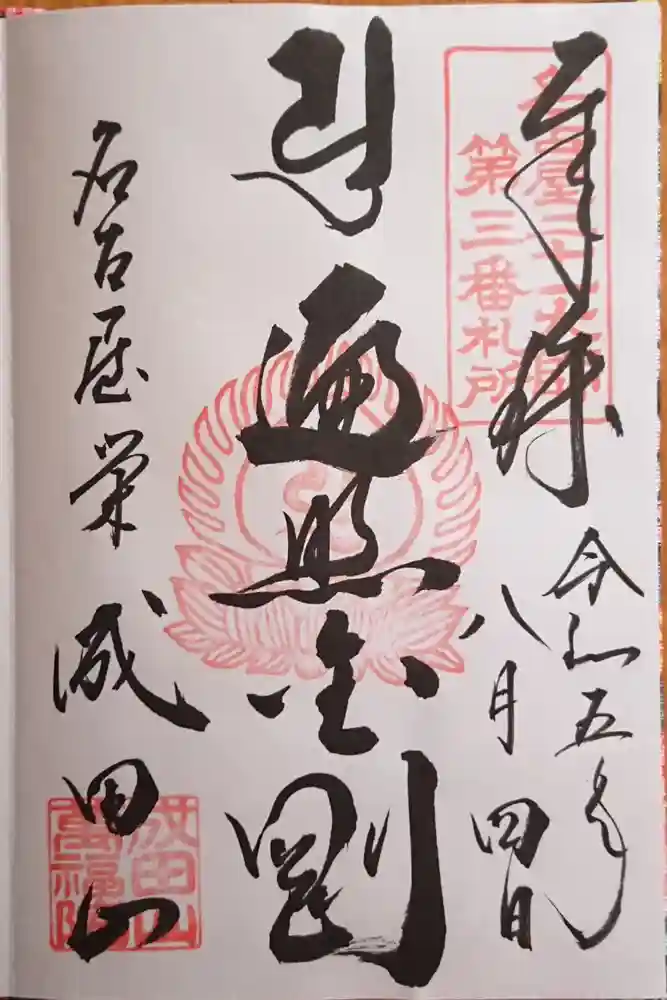 奉拝
名古屋二十一大師
第三番札所
令和五年
八月四日
遍照金剛
名古屋栄 成田山
成田山
萬福院